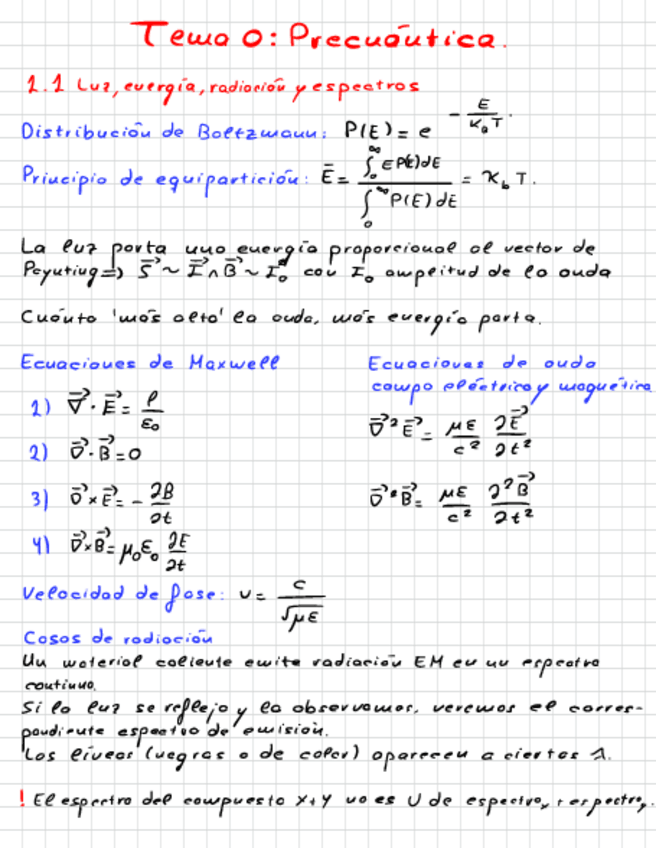 Tema 0: Precuántica.
1.1 Luz, energía, radiación y espectros
Distribución de Boltzmann: P(E) = e^{-E/(K_B T)}.
Principio de equipartición: Ē = ∫₀^∞ E P(E) dE / ∫₀^∞ P(E) dE = K_b T.
La luz porta una energía proporcional al vector de
Poyuting => S⃗ ~ I⃗ ∧ B⃗ ~ I₀² con I₀ amplitud de la onda
Cuánto 'más alto' la onda, más energía porta.
Ecuaciones de Maxwell
1) ∇⃗ · E⃗ = ρ/ε₀
2) ∇⃗ · B⃗ = 0
3) ∇⃗ × E⃗ = - ∂B/∂t
4) ∇⃗ × B⃗ = μ₀ε₀ ∂E/∂t
Ecuaciones de onda
campo eléctrico y magnético
∇⃗² E⃗ = με/c² ∂E⃗/∂t²
∇⃗² B⃗ = με/c² ∂²B⃗/∂t²
Velocidad de fase: v = c/√με
Casos de radiación
Un material caliente emite radiación EM en un espectro
continuo.
Si la luz se refleja y la observamos, veremos el corres-
pondiente espectro de emisión.
Los líneas (negras o de color) aparecen a ciertas λ.
! El espectro del compuesto X+Y no es U de espectro, + espectro,.